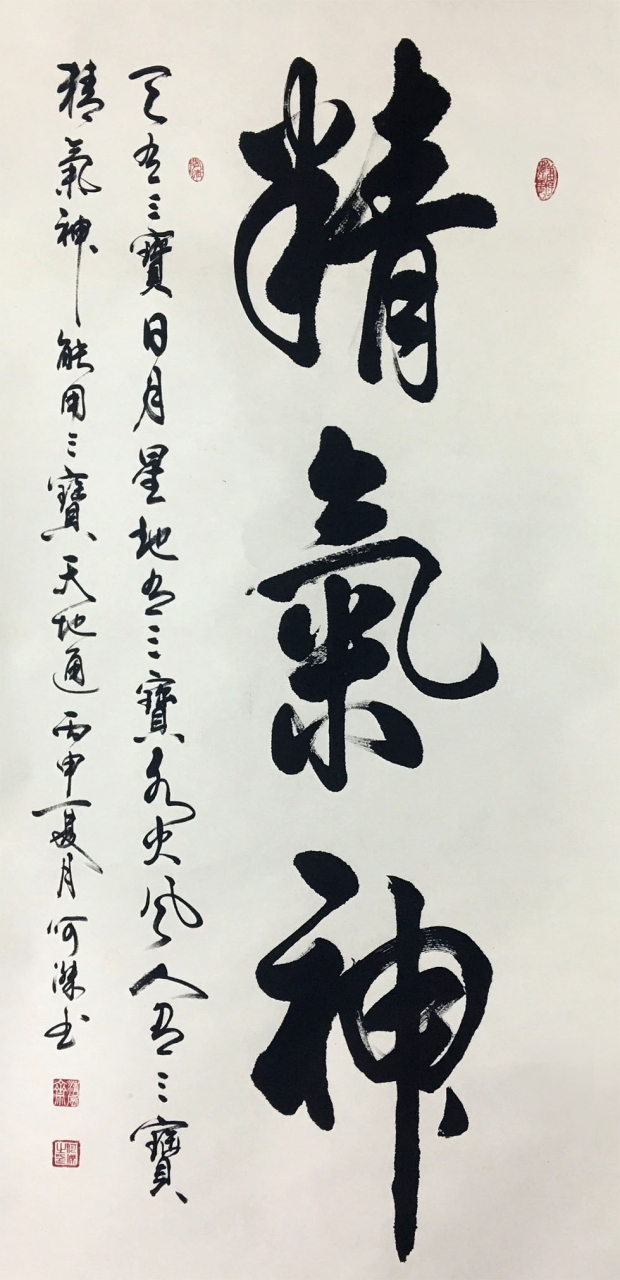 精氣神
天有三寶日月星地有三寶水火風人有三寶
精氣神能用三寶天地通丙申夏月何书